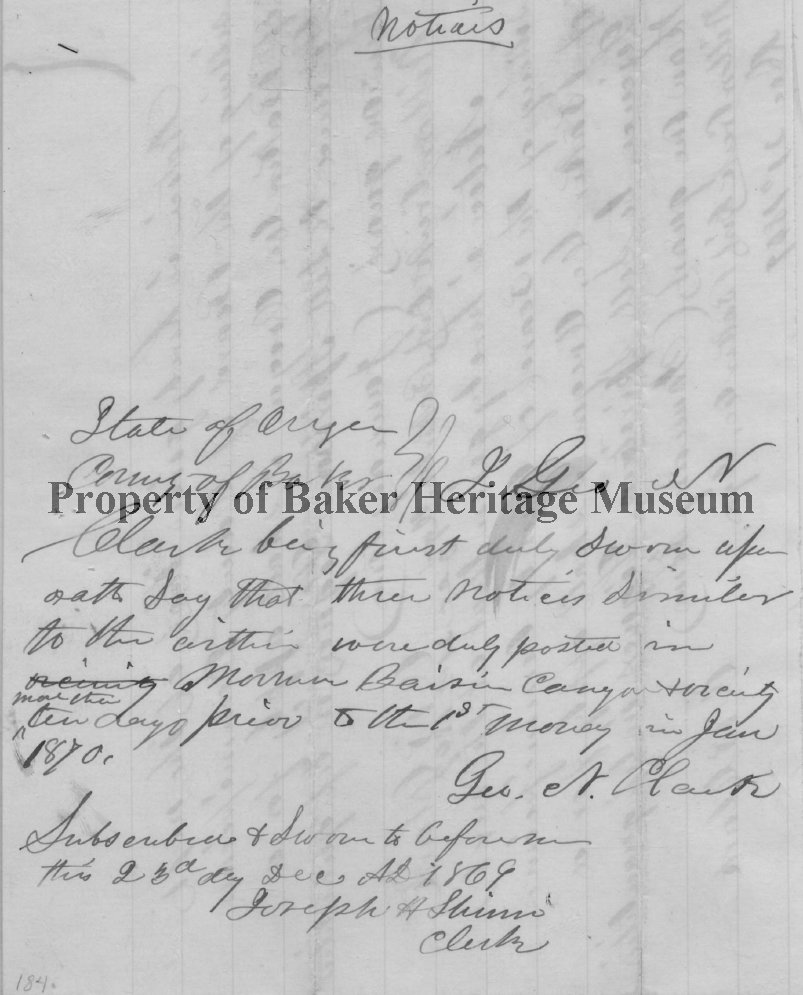 Notices
State of Oregon }
County of Baker } I, Geo N
Property of Baker Heritage Museum
Clark being first duly sworn upon
oath Say that three notices similer
to the within were duly posted in
vicinity Morman Baisin Canyon & vicinity
more then
ten days prior to the 1st Monday in Jan
1870.
Geo. N. Clark
Subscribed & Sworn to before me
this 23d day Dec AD 1869
Joseph H Shinn
Clerk
184.